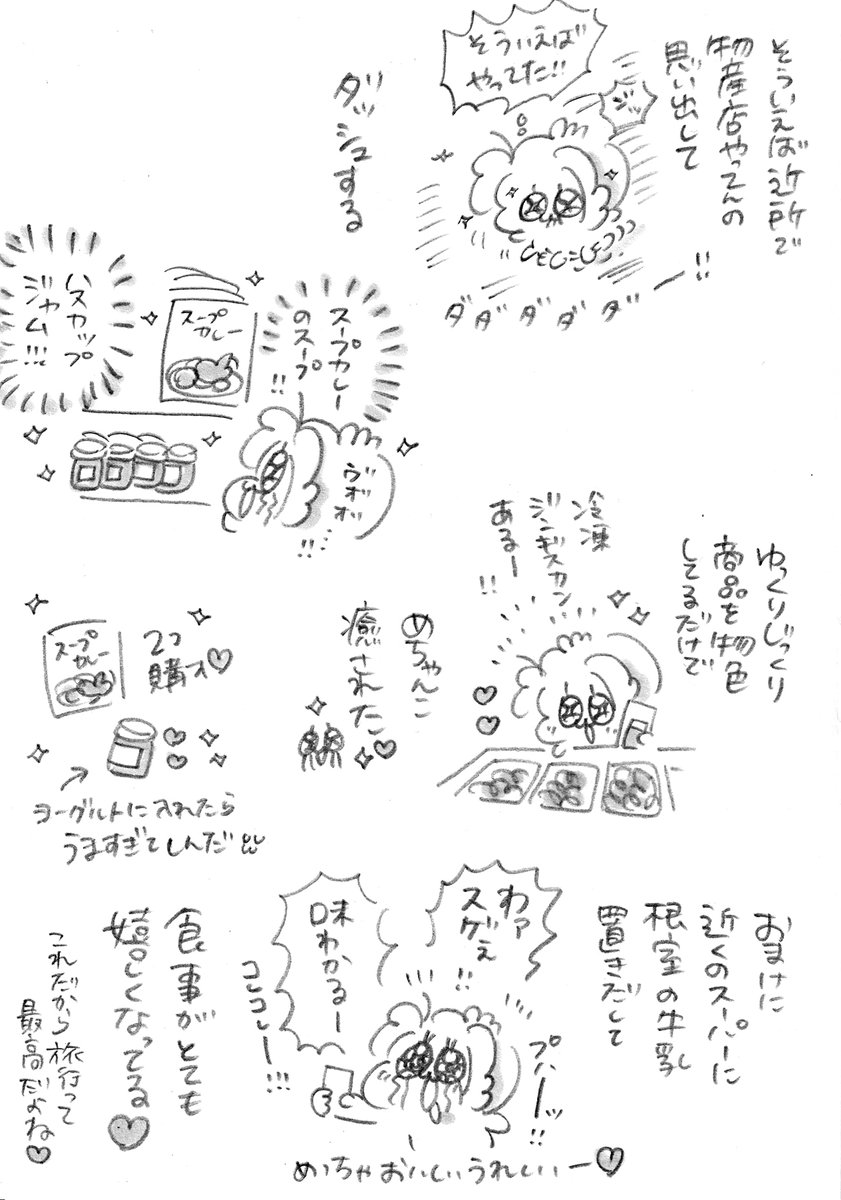 そういえば近所で
物産店やってんの
思い出して
そういえば
やってた!!
ジッ
ー!!
ダダダダダ
ダッシュする
スープカレー
のスープ
!!
スープ
カレー
ハスカップ
ジャム!!!
ヴオオ
!!…
ゆっくりじっくり
商品を物色
してるだけで
冷凍
ジンギスカン
あるー
!!
めちゃんこ
癒された
スープ
カレー
2つ
購入
ヨーグルトに入れたら
うますぎてしんだ
おまけに
近くのスーパーに
根室の牛乳
置きだして
わァ
スゲぇ
!!
プハーッ!!
味わかるー
コンコー!!!
めっちゃおいしいうれしいー
食事がとても
嬉しくなってる
これだから旅行って
最高だよね